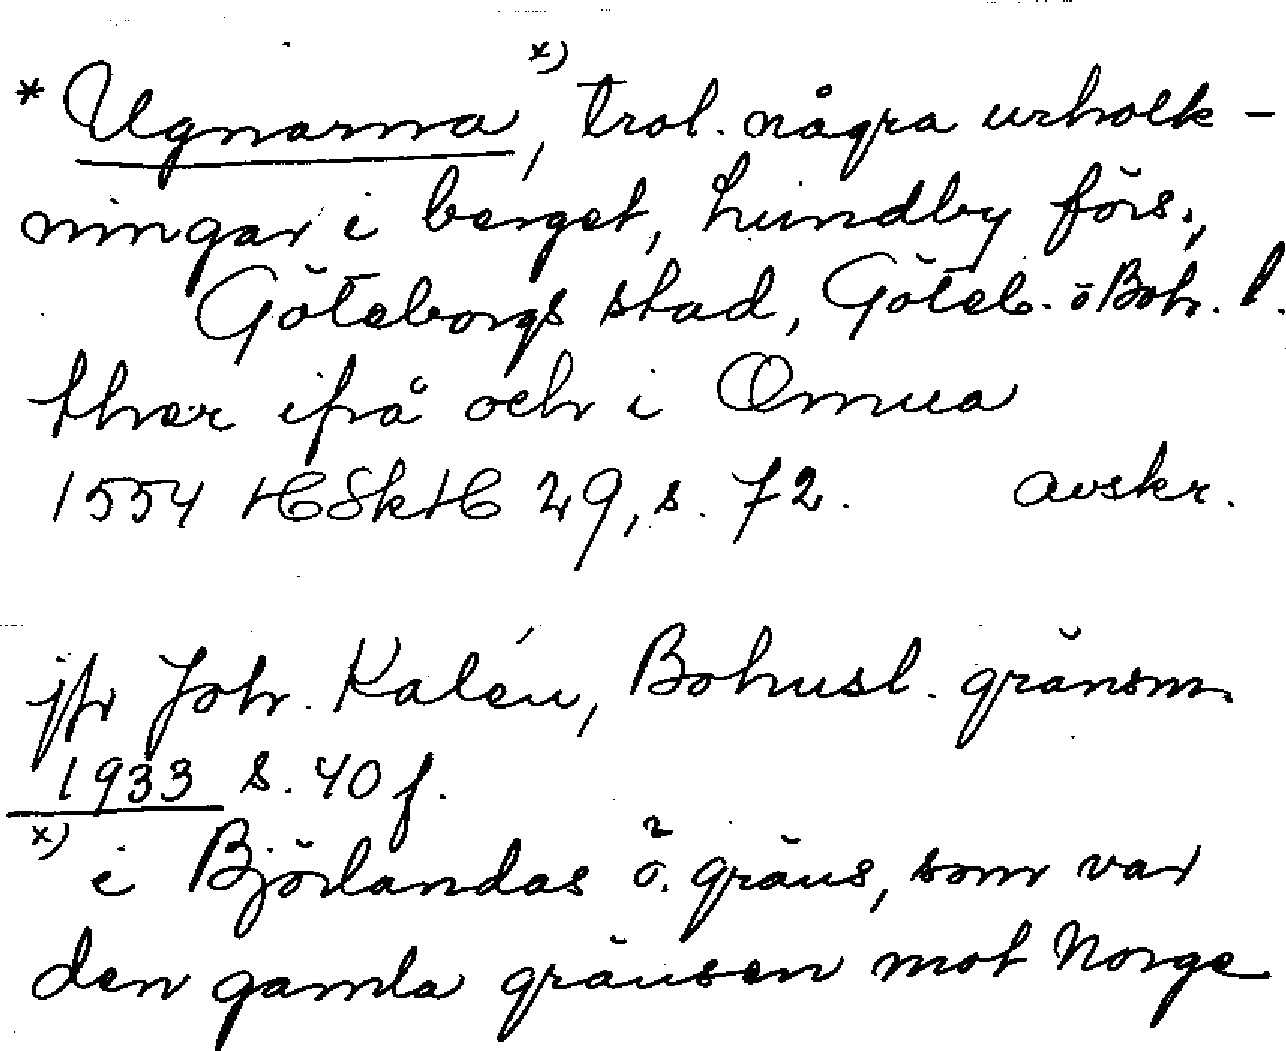 * Ugnarna, x) trol. några urholk-
ningar i berget, Lundby förs.,
Göteborgs stad, Göteb. o Boh. l.
thær ifrå och i Omua
1554 HSkH 29, s. 72. avskr.
jfr Joh. Kalén, Bohusl. gränsm.
1933 s. 40 f.
x) i Björlandas ö. gräns, som var
den gamla gränsen mot Norge